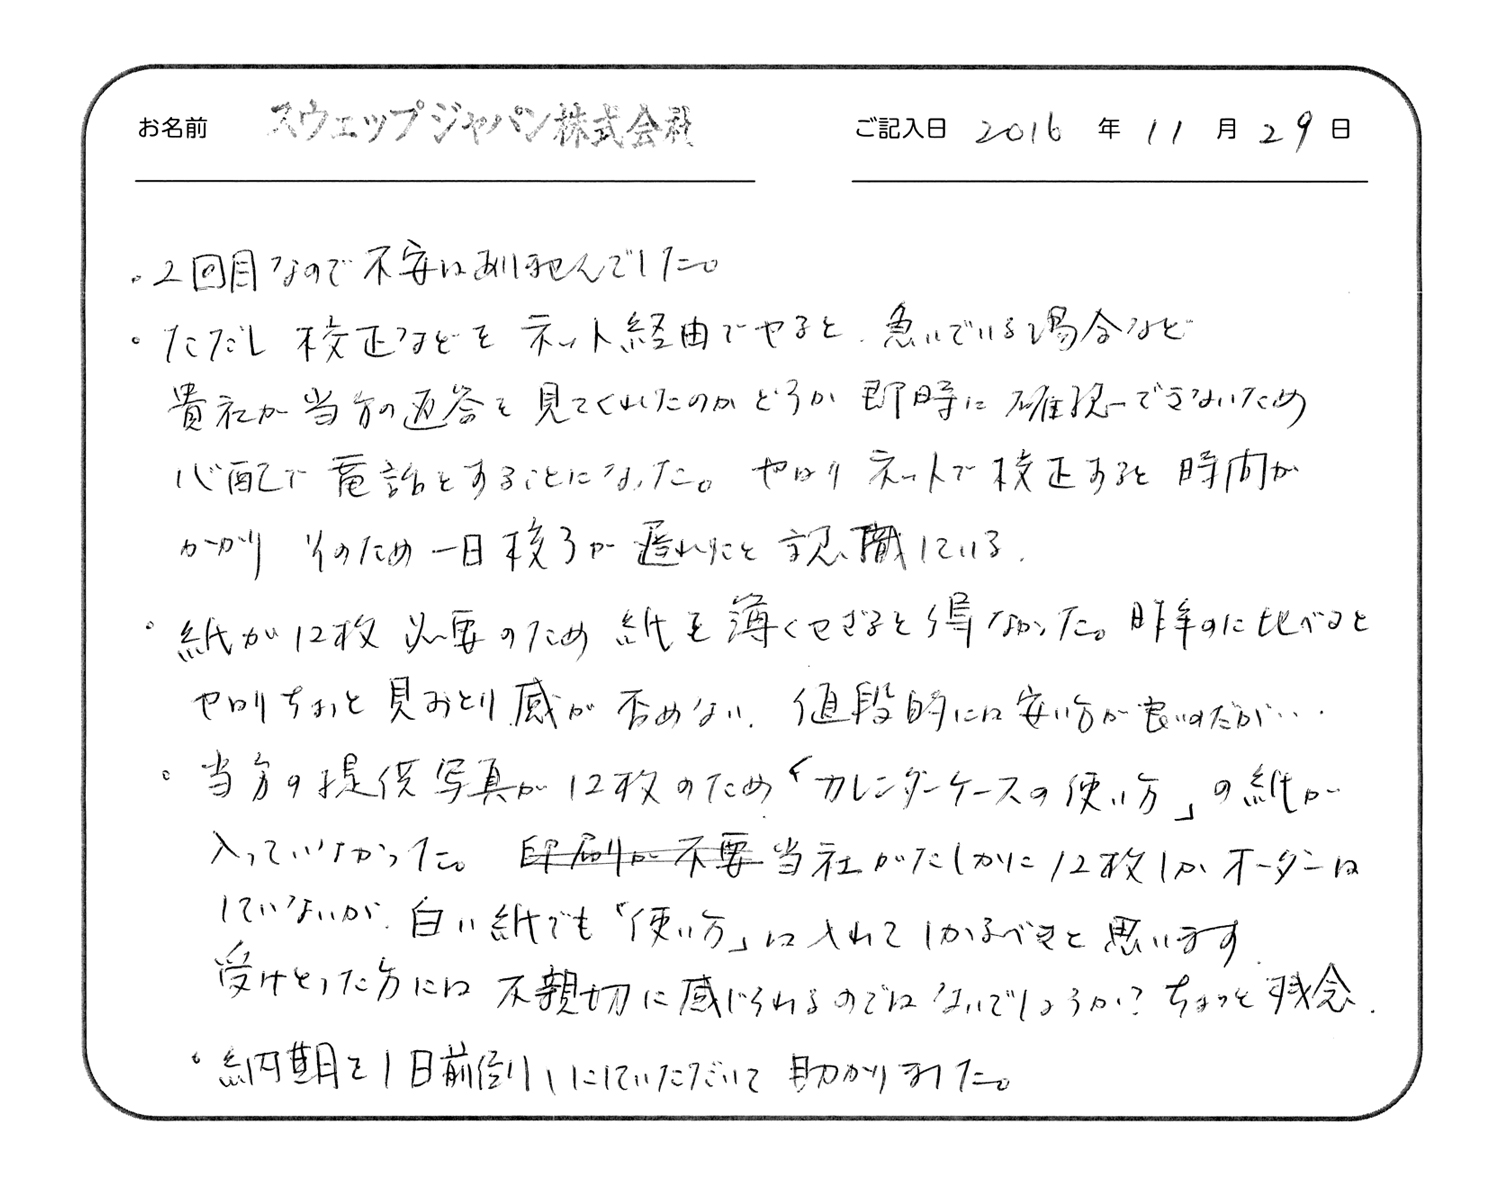 お名前 スウェップジャパン株式会社 ご記入日 2016 年 11 月 29 日
・2回目なので不安はありませんでした。
・ただし 校正などを ネット経由でやると、急いでいる場合など
貴社が当方の返答を見てくれたのかどうか 即時に 確認できないため
心配で 電話をすることになった。 やはり ネットで 校正すると 時間が
かかり そのため 一日 校了が 遅れたと 認識している.
・紙が12枚 必要のため 紙を 薄くせざるを得なかった。昨年のに比べると
やはりちょっと 見おとり感が 否めない. 値段的には 安い方が良いのだが….
・当方の提供写真が12枚のため 「カレンダーケースの使い方」の紙が
入っていなかった。 印刷が不要 当社がたしかに12枚しかオーダーは
していないが、白い紙でも「使い方」は入れてしかるべきと思います.
受けとった方には 不親切に感じられるのではないでしょうか? ちょっと残念.
・納期を1日前倒しにしていただいて 助かりました。